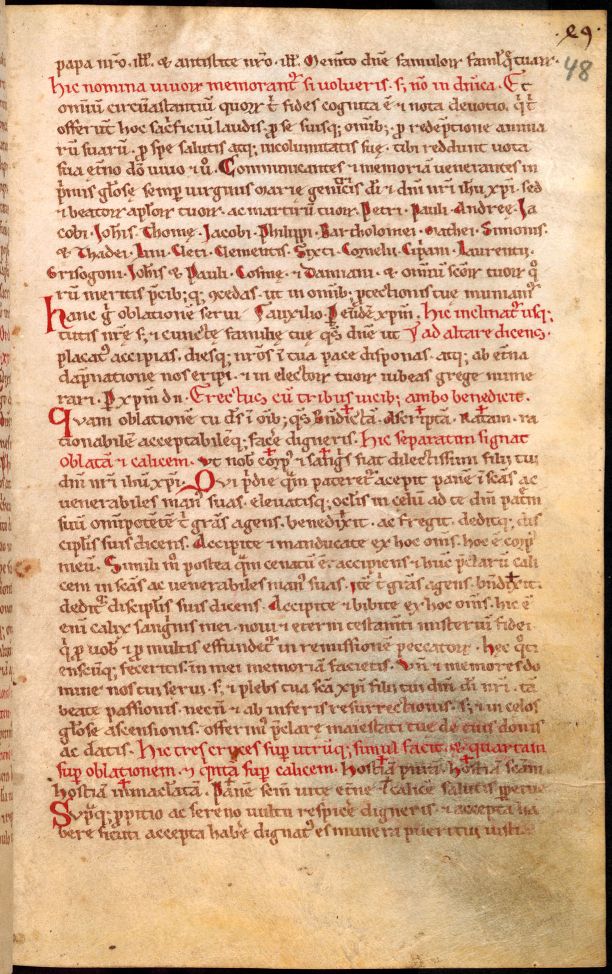 .e9.
48
papa nr̄o .ill̄. & antistite nr̄o .ill̄. Mem̄to dn̄e famulorꝝ famulaꝝq; tuarꝝ.
hic nomina uiuorꝝ memorant᷑ si uolueris. s; nō in dn̄ica. Et
om̄iū circūastantiū quorꝝ t̄ fides cognita ē ⁊ nota deuotio. q̄ t̄
offerūt hoc sac̄ficiū laudis. ꝓ se suisq; om̄ib; ꝓ redēptione anima
rū suarū. ꝓ spe salutis atq; incolumitatis suę. tibi reddunt uota
sua et̄no dō uiuo ⁊ uº. Communicantes ⁊ memoriā uenerantes in
p̄mis gl̄ose semp uirginis Marie genit̄cis dī ⁊ dn̄i nr̄i ih̄u xp̄i. sed
& beatorꝝ apl̄orꝝ tuorꝝ. ac martirū tuorꝝ. Petri. Pauli. Andreę. Ja
cobi. Joh̄is. Thomę. Jacobi. Philippi. Bartholomei. Mathei. Simonis.
& Thadei. Lini. Cleti. Clementis. Sixti. Cornelii. Cip̄ani. Laurentii.
Grisogoni. Joh̄is & Pauli. Cosmę. ⁊ Damiani. & om̄iū sc̄orꝝ tuorꝝ q̄
rū meritis p̄cib;q; ꝯcedas. ut in om̄ib; ꝓtectionis tuę muniam᷑
hanc ḡ oblatione serui auxilio. P eūdē xp̄m. hic inclinat᷑ usq;
tutis nr̄ę s; ⁊ cunctę familię tuę qs̄ dn̄e ut ad altare dicens.
placat᷒ accipias. diesq; nr̄os ī tua pace disponas. atq; ab et̄na
dāpnatione nos eripi. ⁊ in electorꝝ tuorꝝ iubeas grege nume
rari. P xp̄m dn̄. Erectus cū tribus uicib; ambo benedicit.
Quam oblationem tu ds̄ ī oīb; qs̄ bn̄dictā. ascriptā. Ratam. ra
tionabilē acceptabilēq; face digneris. hic separatim signat
oblatā ⁊ calicem. Ut nob̄ corp᷒ ⁊ sang᷒s fiat dilectissimi filii tui
dn̄i nr̄i ih̄u xp̄i. Qui p̄die quā pateret᷑ accepit panē ī sc̄as ac
uenerabiles man᷒ suas. eleuatisq; oc̄lis in celū ad te dm̄ pat̄m
suū om̄ipotētē t̄ gr̄as agens. benedixit. ac fregit. deditq; dis
cipl̄is suis dicens. Accipite ⁊ manducate ex hoc om̄s. hoc ē corp᷒
meū. Simili m̄ postea quā cenatū ē. accipiens ⁊ hūc p̄clarū cali
cem in sc̄as ac uenerabiles man᷒ suas. itē t̄ gr̄as agens. bn̄dixit.
dedit discipl̄is suis dicens. Accipite ⁊ bibite ex hoc om̄s. hic ē
eni calix sang᷒nis mei. noui ⁊ eterni testam̄ti misteriū fidei.
q̄ ꝓ uob̄ ⁊ ꝓ multis effundet᷑ in remissionē peccatorꝝ. Hec q̄ti
enscūq; feceritis. in mei memoriā facietis. Vn̄ ⁊ memores do
mine nos tui serui. s; ⁊ plebs tua sc̄a xp̄i filii tui dn̄i dī nr̄i. tā
beate passionis. necn̄ ⁊ ab inferis resurrectionis. s; ⁊ in celos
gl̄ose ascensionis. offerim᷒ p̄clare maiestati tue de tuis donis
ac datis. hic tres cruces sup utrūq; simul facit. & quartam
sup oblationem. ⁊ q̄nta sup calicem. hostiā purā. hostiā sc̄am.
hostiā īmaculatā. Panē sc̄m uite et̄ne & calicē salutis ppetue
Supq; ꝓpitio ac sereno uultu respice digneris. ⁊ accepta ha
bere sicuti accepta hab̄e dignat᷒ es munera pueri tui iusti